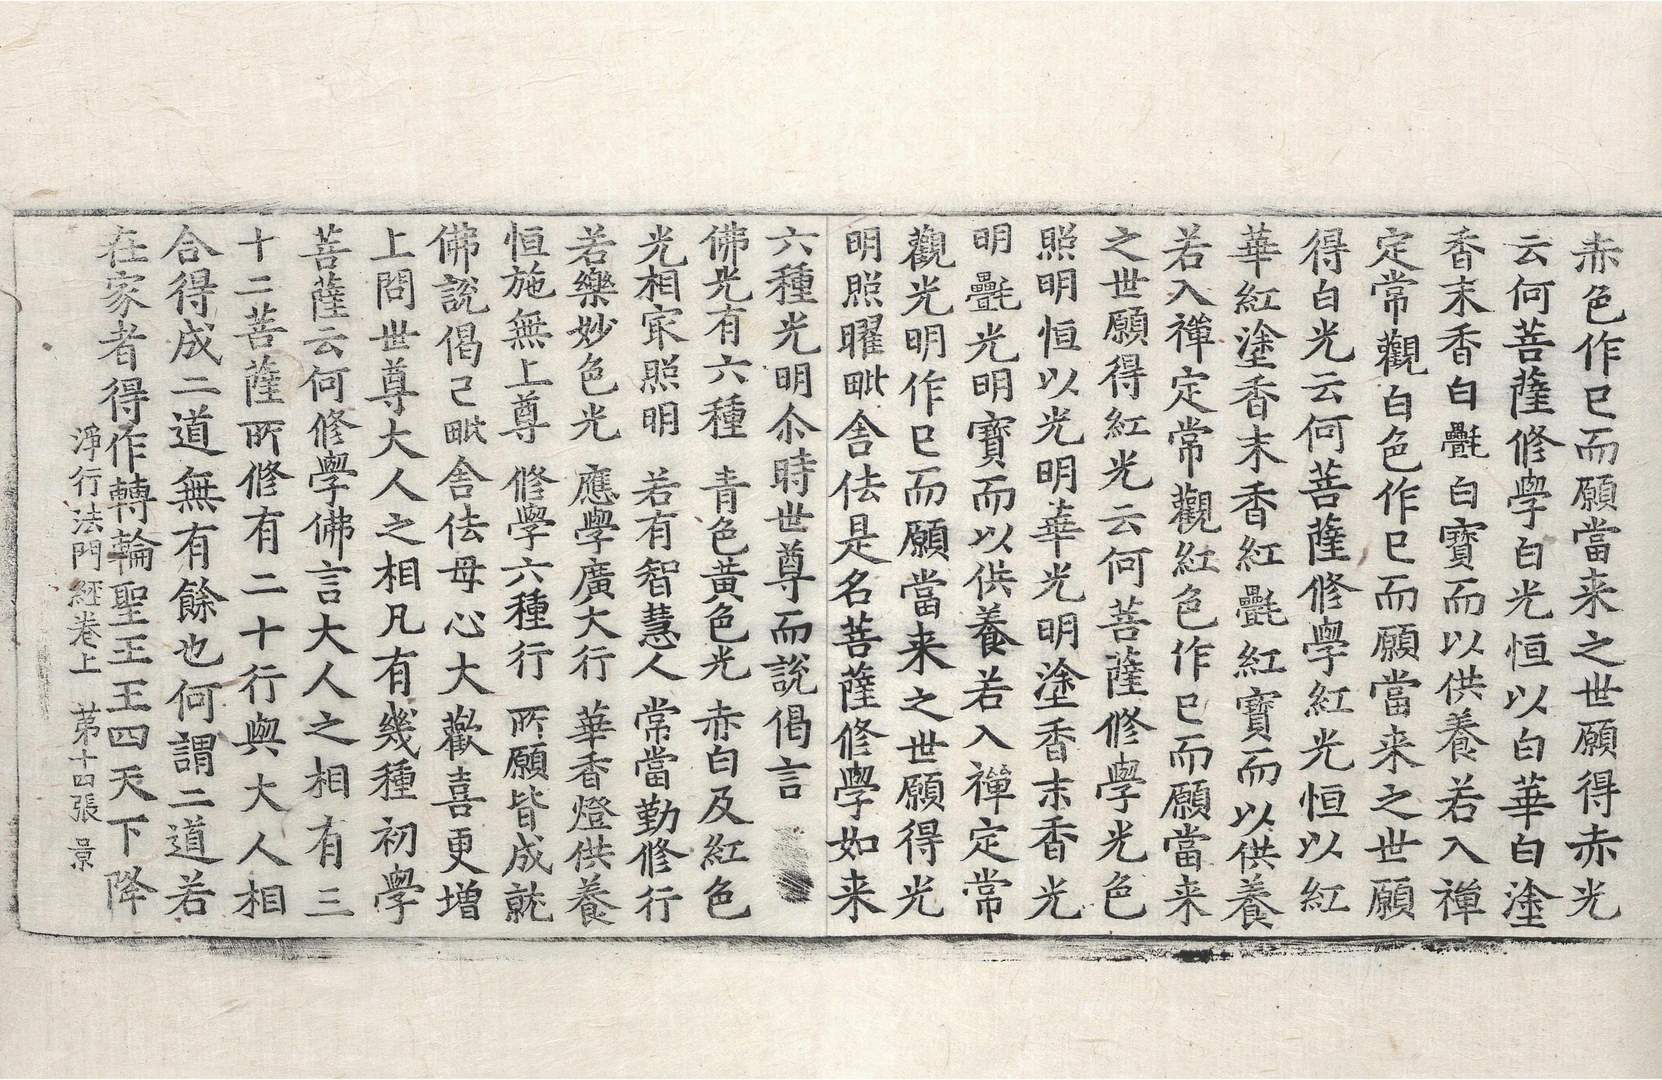 赤色作已而願當来之世願得赤光
云何菩薩修學白光恒以白華白塗
香末香白㲲白寶而以供養若入禅
定常觀白色作已而願當来之世願
得白光云何菩薩修學紅光恒以紅
華紅塗香末香紅㲲紅寶而以供養
若入禪定常觀紅色作已而願當来
之世願得紅光云何菩薩修學光色
照明恒以光明華光明塗香末香光
明㲲光明寶而以供養若入禪定常
觀光明作已而願當来之世願得光
明照曜毗舍佉是名菩薩修學如来
六種光明尒時世尊而說偈言
佛光有六種　青色黃色光　赤白及紅色
光相㝡照明　若有智慧人　常當勤修行
若樂妙色光　應學廣大行　華香燈供養
恒施無上尊　修學六種行　所願皆成就
佛說偈已毗舍佉母心大歡喜更增
上問世尊大人之相凡有幾種初學
菩薩云何修學佛言大人之相有三
十二菩薩所修有二十行與大人相
合得成二道無有餘也何謂二道若
在家者得作轉輪聖王王四天下降
淨行法門經卷上　苐十四張　景